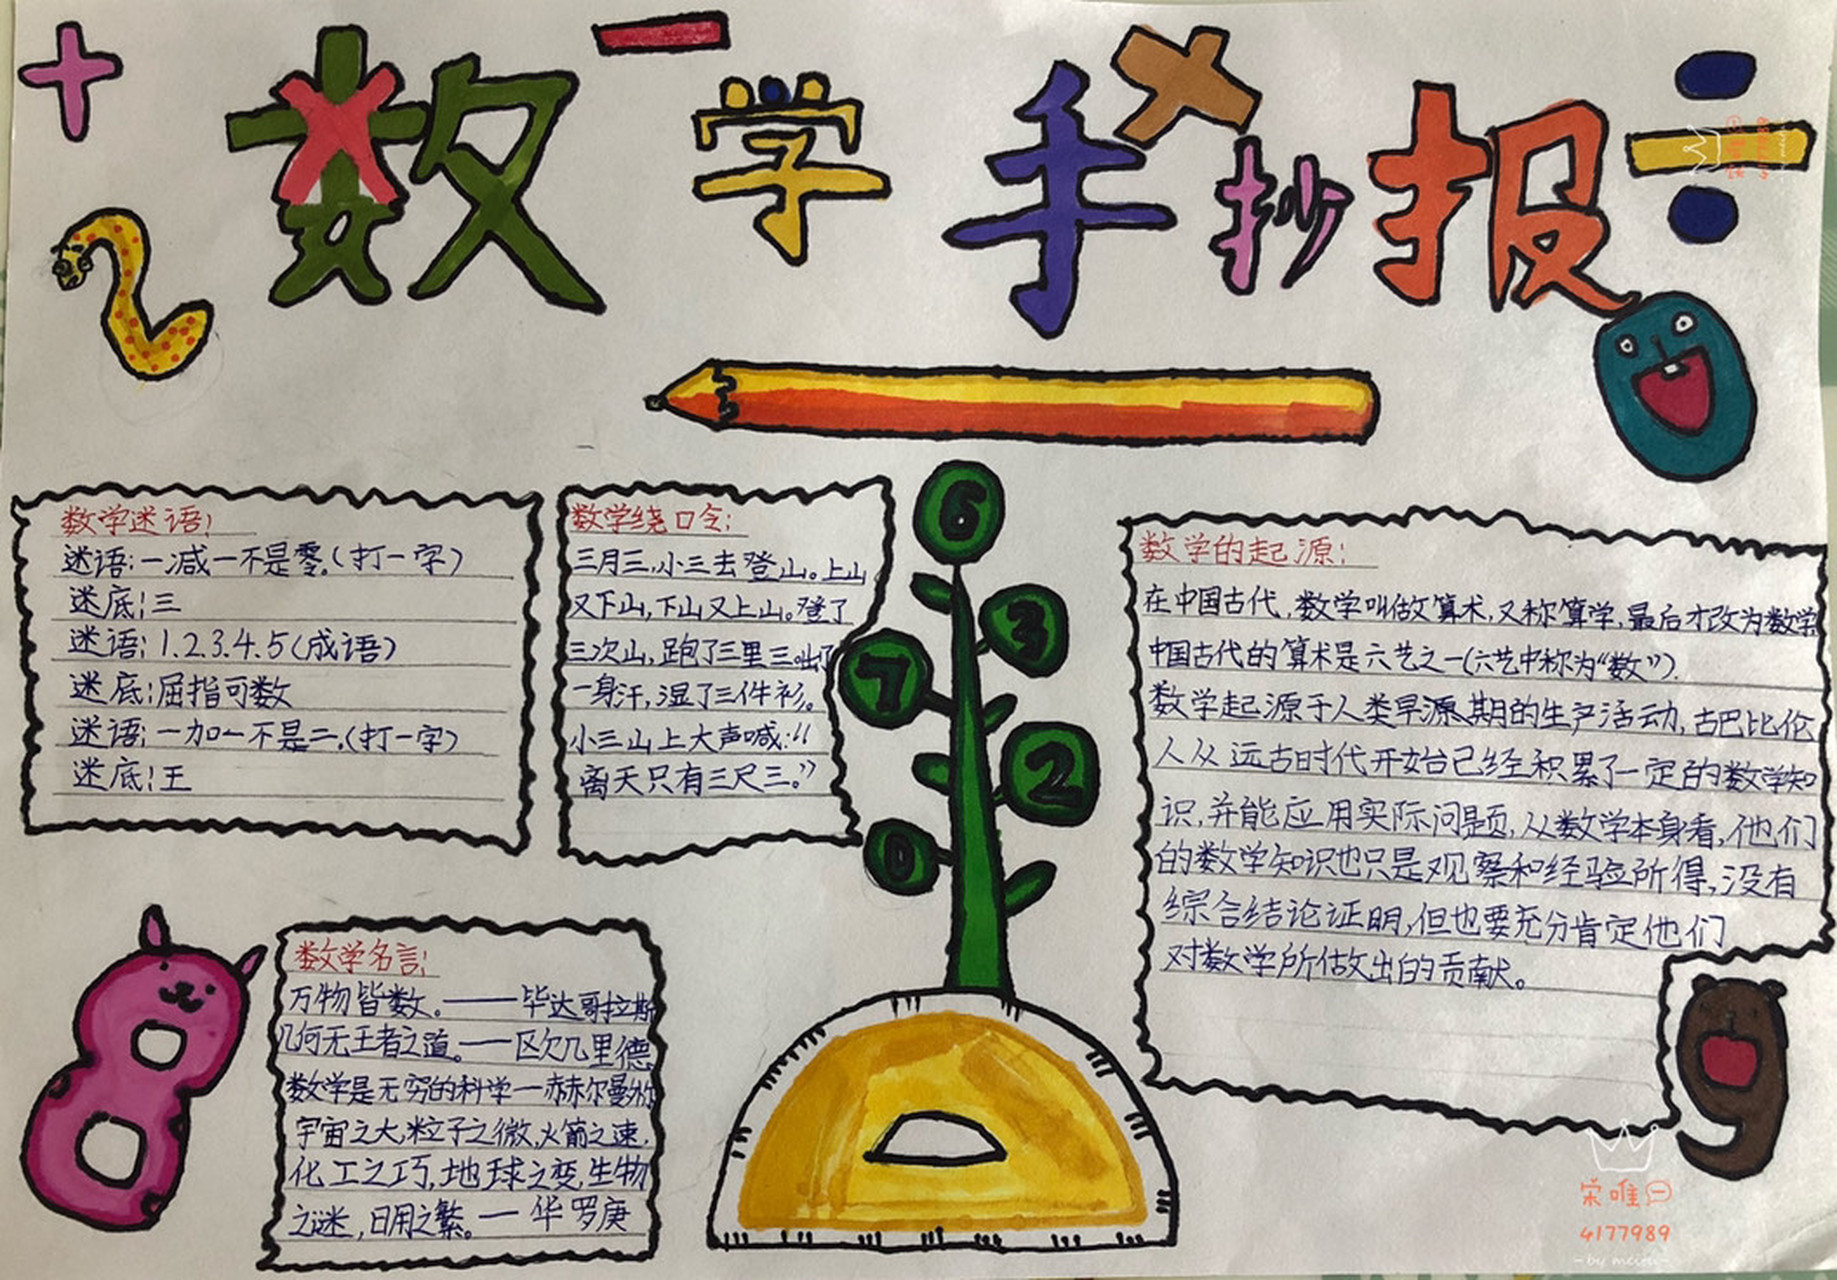 数学手抄报
数学迷语:
迷语:一减一不是零.(打一字)
迷底:三
迷语:1.2.3.4.5(成语)
迷底:屈指可数
迷语:一加一不是二.(打一字)
迷底:王
数学绕口令:
三月三,小三去登山。上山
又下山,下山又上山。登了
三次山,跑了三里三。出了
一身汗,湿了三件衫。
小三山上大声喊:“
离天只有三尺三。”
6
3
7
2
0
数学的起源:
在中国古代,数学叫做算术,又称算学,最后才改为数学
中国古代的算术是六艺之一(六艺中称为“数”).
数学起源于人类早源期的生产活动,古巴比伦
人从远古时代开始已经积累了一定的数学知
识,并能应用实际问题,从数学本身看,他们
的数学知识也只是观察和经验所得,没有
综合结论证明,但也要充分肯定他们
对数学所做出的贡献。
数学名言:
万物皆数。——毕达哥拉斯
几何无王者之道。——欧几里德
数学是无穷的科学—赫尔曼外尔
宇宙之大,粒子之微,火箭之速,
化工之巧,地球之变,生物
之谜,日用之繁。—华罗庚
荣唯一
4177989